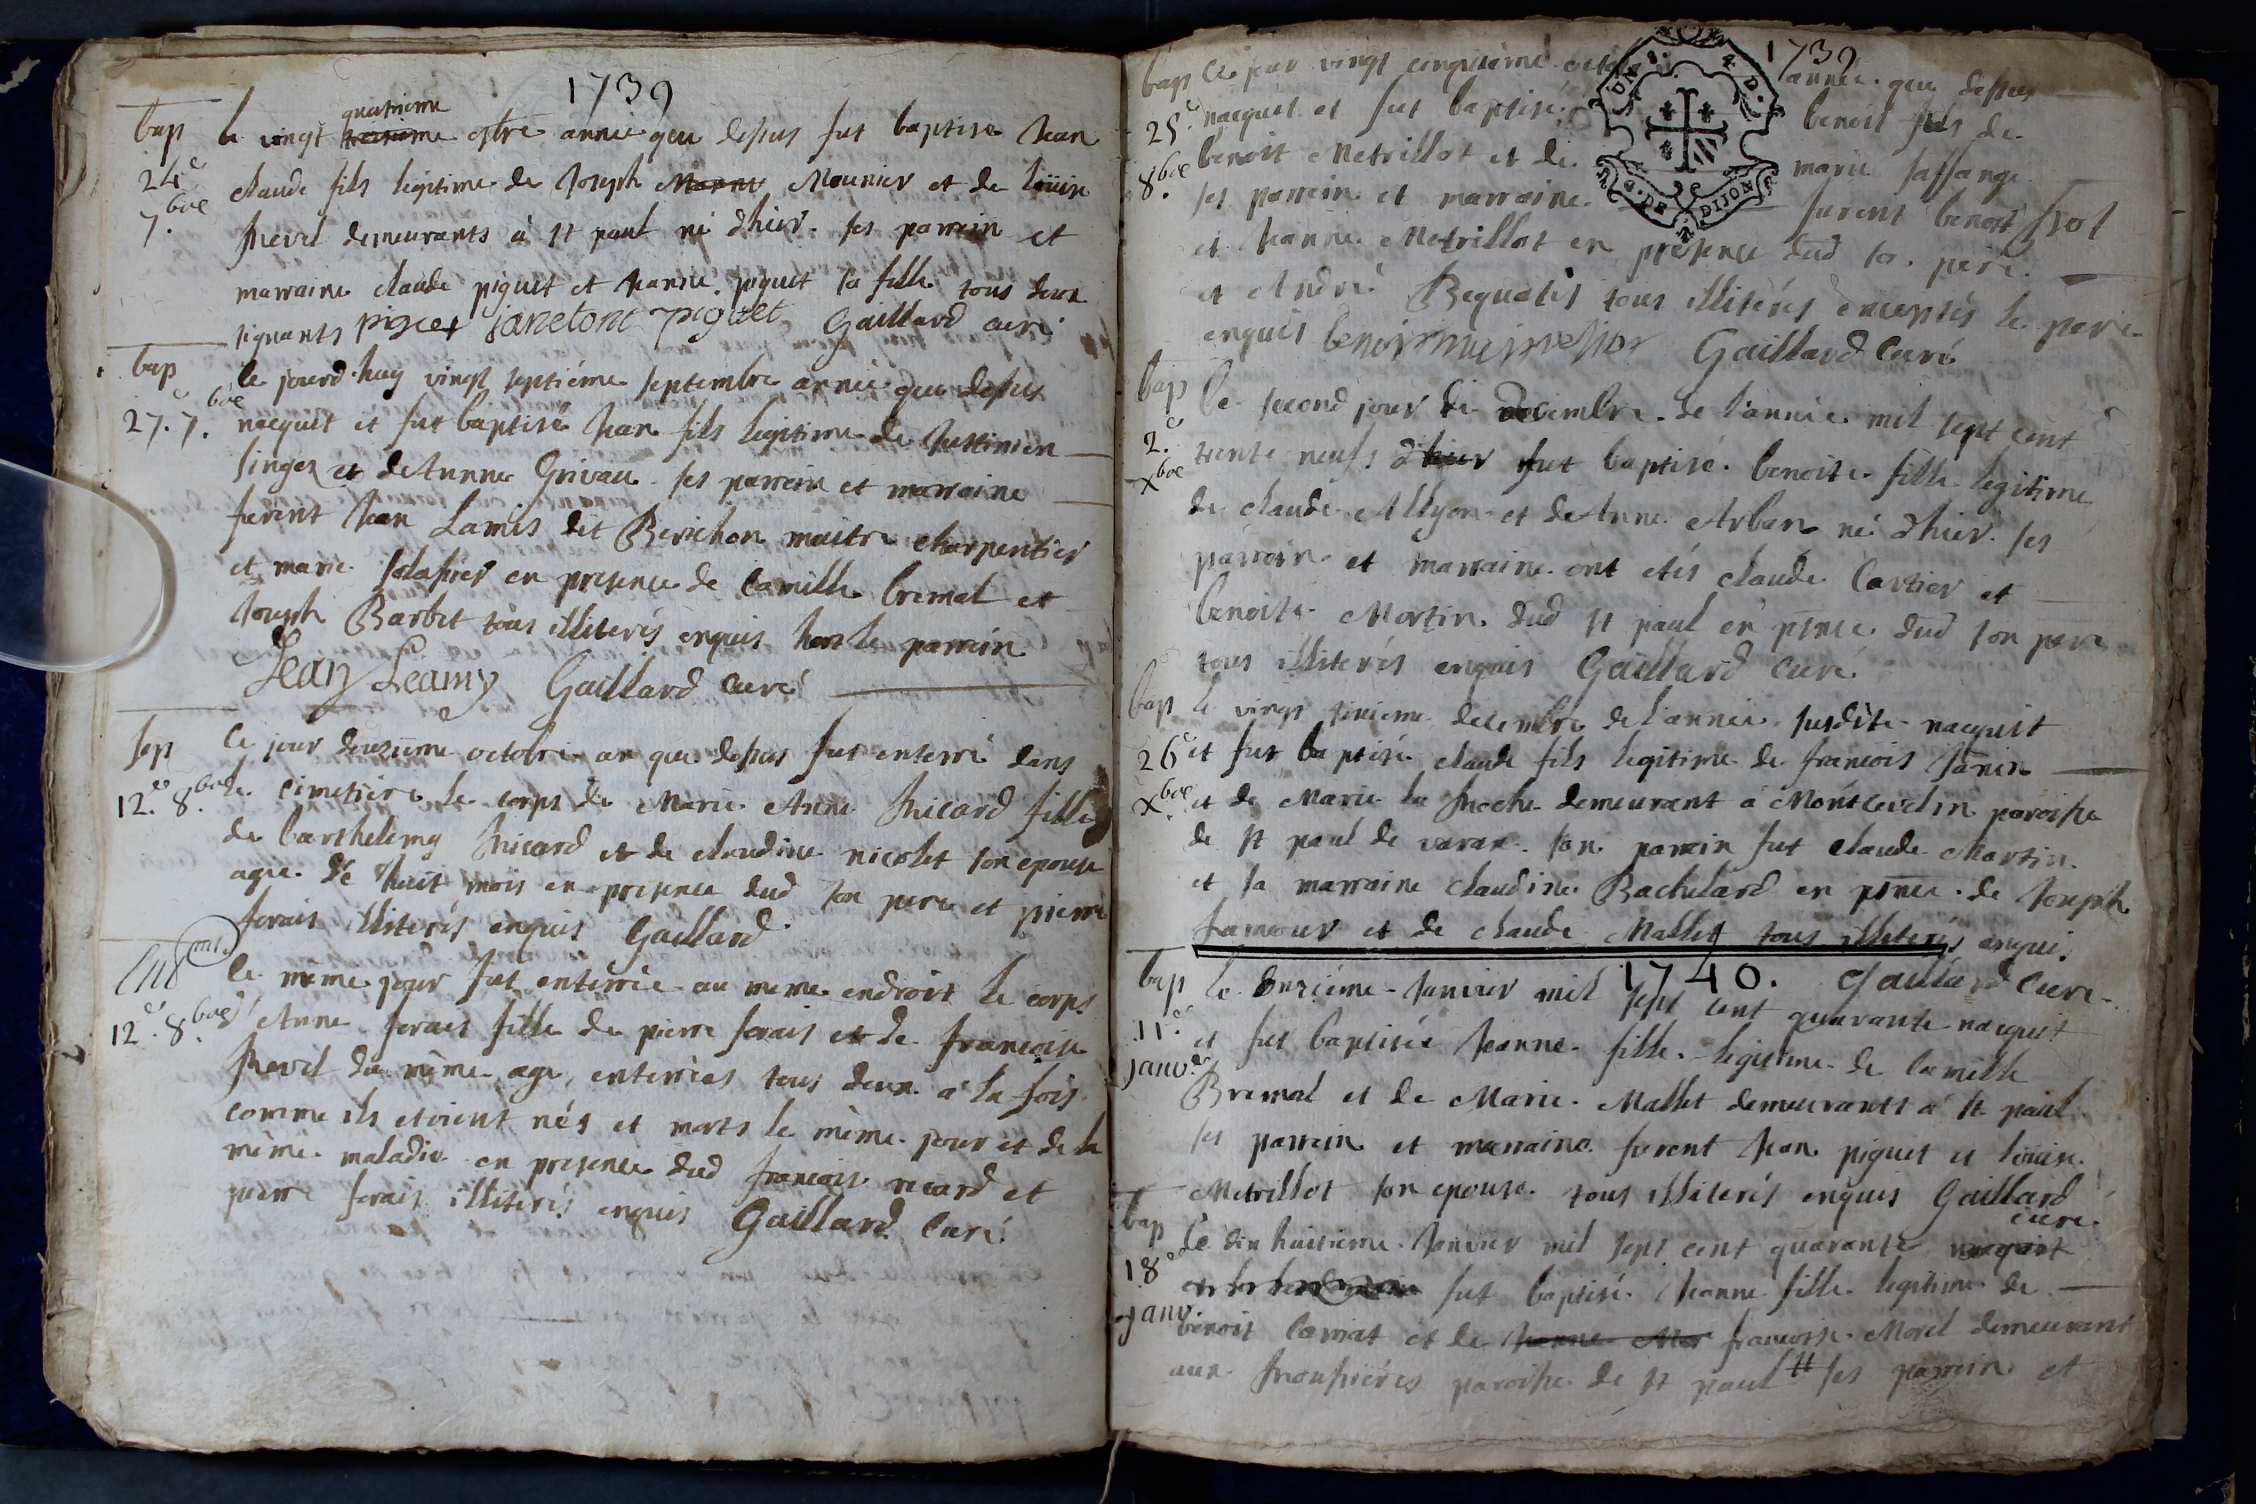 1739
bap
24e
7.bre
le vingt quatrieme 7bre année que dessus fut baptisé Jean
claude fils legitime de Joseph Mounier et de louise
Revel demeurants à st paul né d'hier. ses parrein et
marraine claude piguet et Jeanne piguet sa fille tous deux
signants piget janetont piguet Gaillard curé
bap
27.e 7.bre
le jourd'huy vingt septiéme septembre année que dessus
nacquit et fut baptisé Jean fils legitime de Justinien
singer et de Anne Grivau ses parrein et marraine
furent Jean Lamis dit Berichon maitre charpentier
et marie en presence de Camille bremal et
Joseph Barbet tous illiterés enquis hors le parrein
Jean Leamy Gaillard curé
sep
12.e 8.bre
Ce jour douziéme octobre an que dessus fut enterré dans
le cimetiere le corps de Marie Anne Ricard fille
de barthelemy Ricard et de claudine nicolet son epouse
agée de huit mois en presence dud son pere et pierre
ferais illiterés enquis Gaillard
12.e 8.bre
le méme jour fut enterrée au meme endroit le corps
d'Anne ferais fille de pierre ferais et de francoise
Revel du méme age, enterrées tous deux à la fois
comme ils etoient nés et morts le méme jour et de la
méme maladie en presence dud francois ricard et
pierre ferais illiterés enquis Gaillard Curé
1739
GEN. DE DIJON
bap
25.e
8.bre
Ce jour vingt cinquieme octobre année que dessus
nacquit et fut baptisé benoit fils de
benoit Metrillot et de marie saffange
ses parrein et marraine furent benoit
et Jeanne Metrillot en presence dud so. pere
et André Bequatis tous illiterés exceptés le pere
enquis Gaillard Curé
bap
2.e
xbre
le second jour de decembre de l'année mil sept cent
trente neufs fut baptisé benoite fille legitime
de claude Allyon et de Anne Arban né d'hier ses
parrein et marraine ont etés claude Cartier et
benoite Martin dud st paul en pnce dud son pere
tous illiterés enquis Gaillard Curé
bap
26e
xbre
le vingt sixieme decembre de l'année susdite nacquit
et fut baptisé claude fils legitime de francois Janin
et de Marie la Roche demeurant à Montcevelin paroisse
de st paul de varax son parrein fut claude Martin
et sa marraine claudine Bachelard en pnce de Joseph
Lamour et de claude Mallet tous illiterés enquis
Gaillard Curé
1740.
bap
11.e
janv.er
le onziéme Janvier mil sept cent quarante nacquit
et fut baptisée Jeanne fille legitime de Camille
Bremal et de Marie Mallet demeurants à st paul
ses parrein et marraine furent Jean piguet et louise
Metrillot son epouse tous illiterés enquis Gaillard
curé
bap
18e
janv
le dix huitieme Janvier mil sept cent quarante nacquit
fut baptisé Jeanne fille legitime de
benoit Carriat et de francoise Morel demeurant
aux Rousieres paroisse de st paul ses parrein et